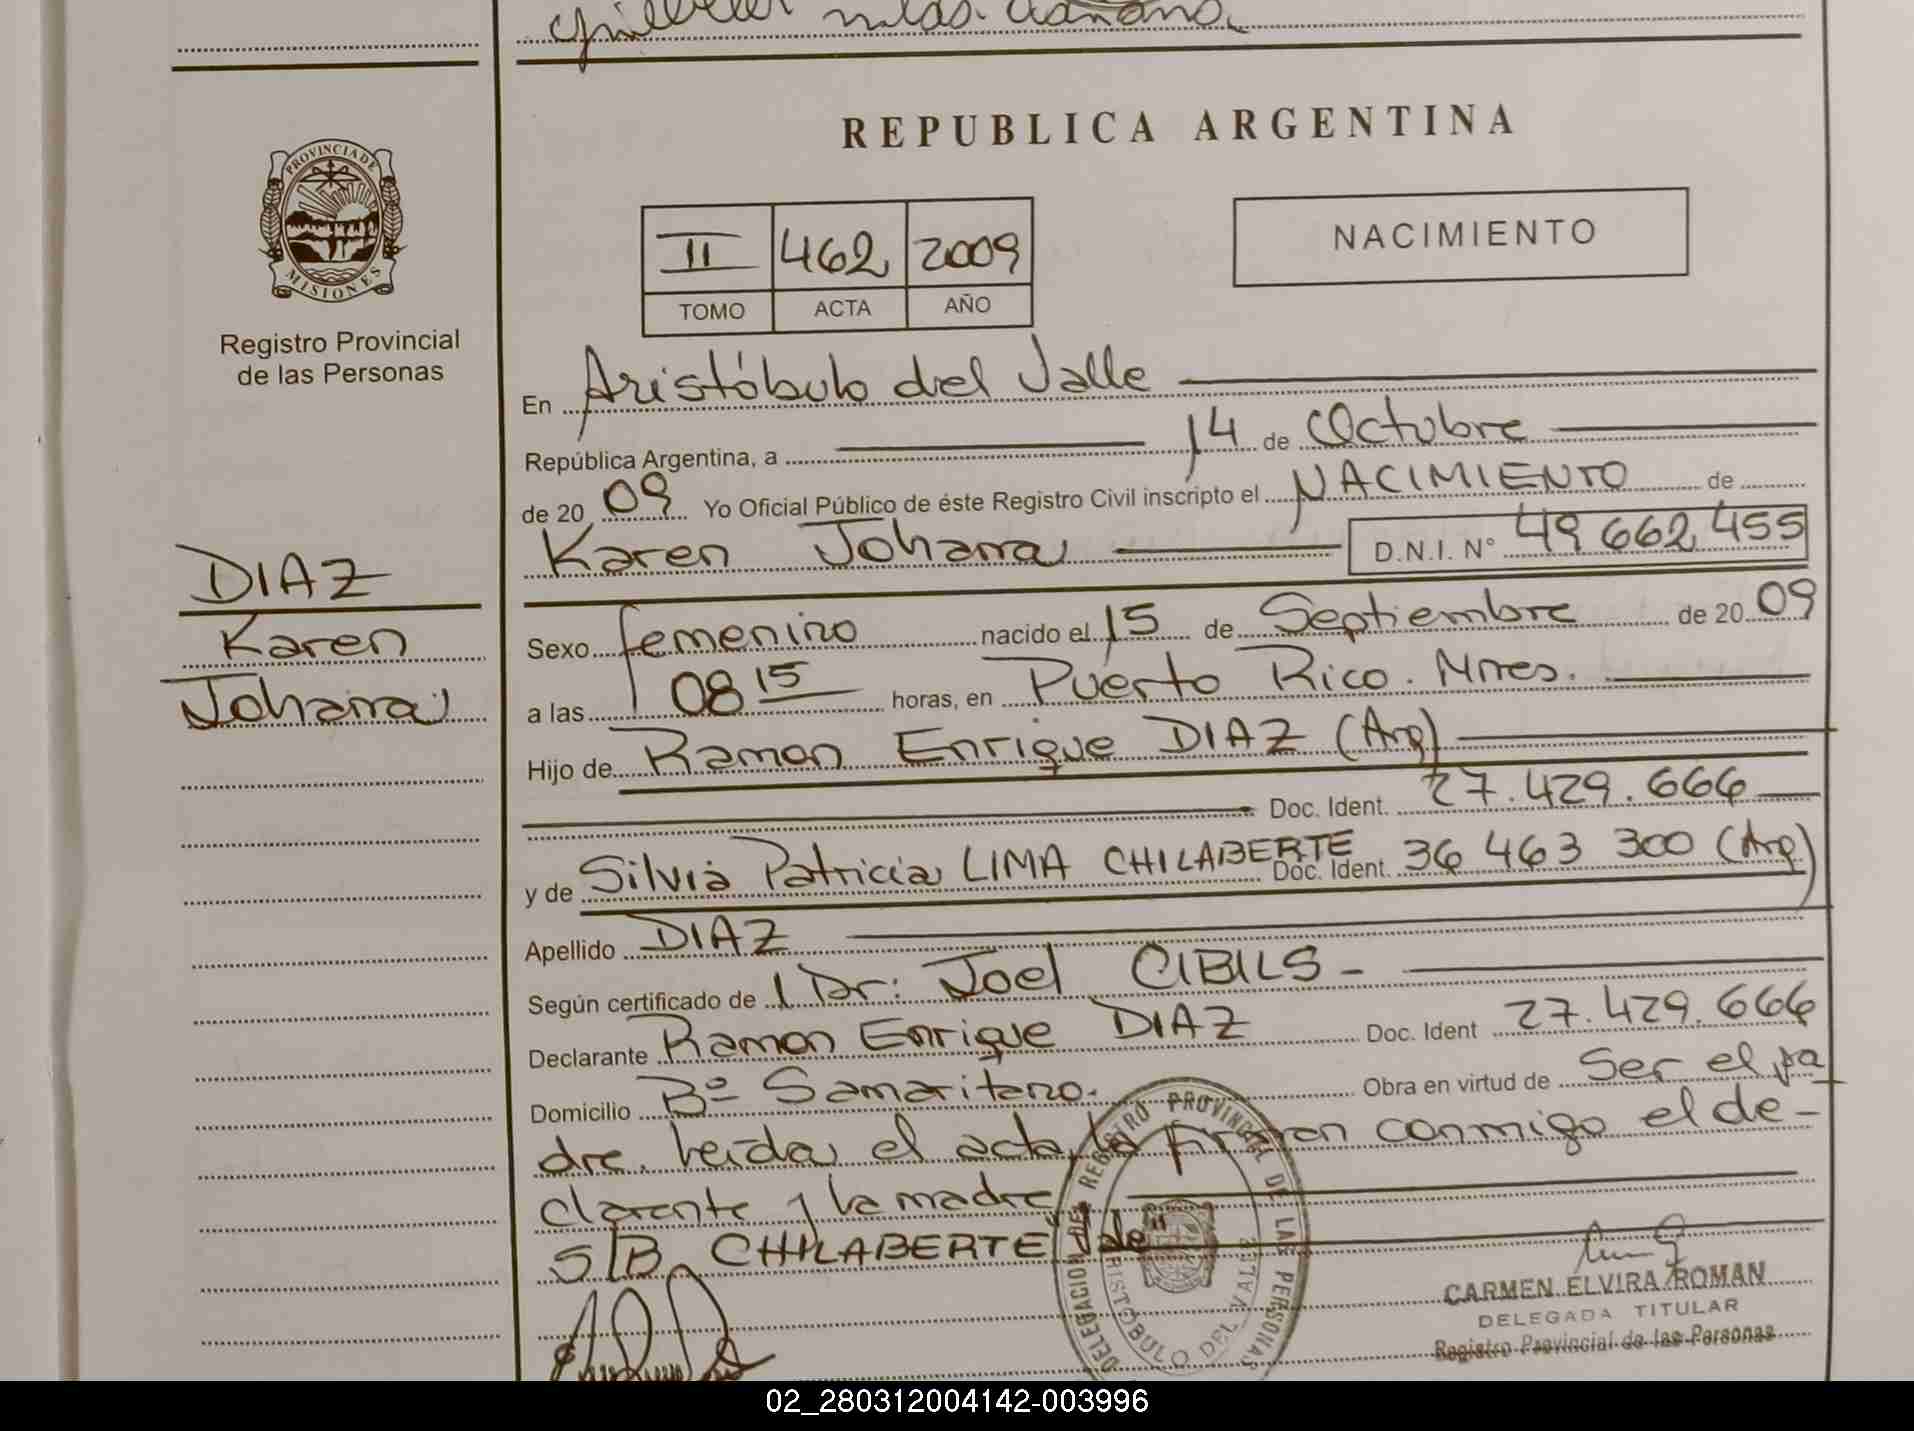 REPUBLICA ARGENTINA
PROVINCIA DE MISIONES
Registro Provincial
de las Personas
NACIMIENTO
II 462 2009
TOMO ACTA AÑO
En Aristóbulo del Valle
República Argentina, a 14 de Octubre
de 20 09 Yo Oficial Público de éste Registro Civil inscripto el NACIMIENTO de
Karen Johana D.N.I. N° 49 662 455
DIAZ
Karen
Johana
Sexo femenino nacido el 15 de Septiembre de 20 09
a las 08 15 horas, en Puerto Rico. Mnes.
Hijo de Ramon Enrique DIAZ (Arg)
Doc. Ident. 27.429.666
y de Silvia Patricia LIMA CHILABERTE Doc. Ident. 36 463 300 (Arg)
Apellido DIAZ
Según certificado de Dr: Joel CIBILS -
Declarante Ramon Enrique DIAZ Doc. Ident 27.429.666
Domicilio B° Samaritano. Obra en virtud de Ser el pa
dre. Leida el acta, la firman conmigo el de-
clarante y la madre
S/B CHILABERTE "de"
DELEGACION DEL REGISTRO PROVINCIAL DE LAS PERSONAS
ARISTOBULO DEL VALLE
CARMEN ELVIRA ROMAN
DELEGADA TITULAR
Registro Provincial de las Personas
02_280312004142-003996